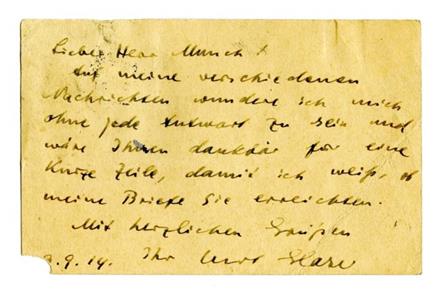 Lieber Herr Munch!
Auf meine verschiedenen
Nachrichten wundere ich mich
ohne jede Antwort zu sein und
wäre Ihnen dankbar für eine
kurze Zeile, damit ich weiß, ob
meine Briefe Sie erreichten.
Mit herzlichen Grüßen
3.9.14. Ihr Curt Glaser